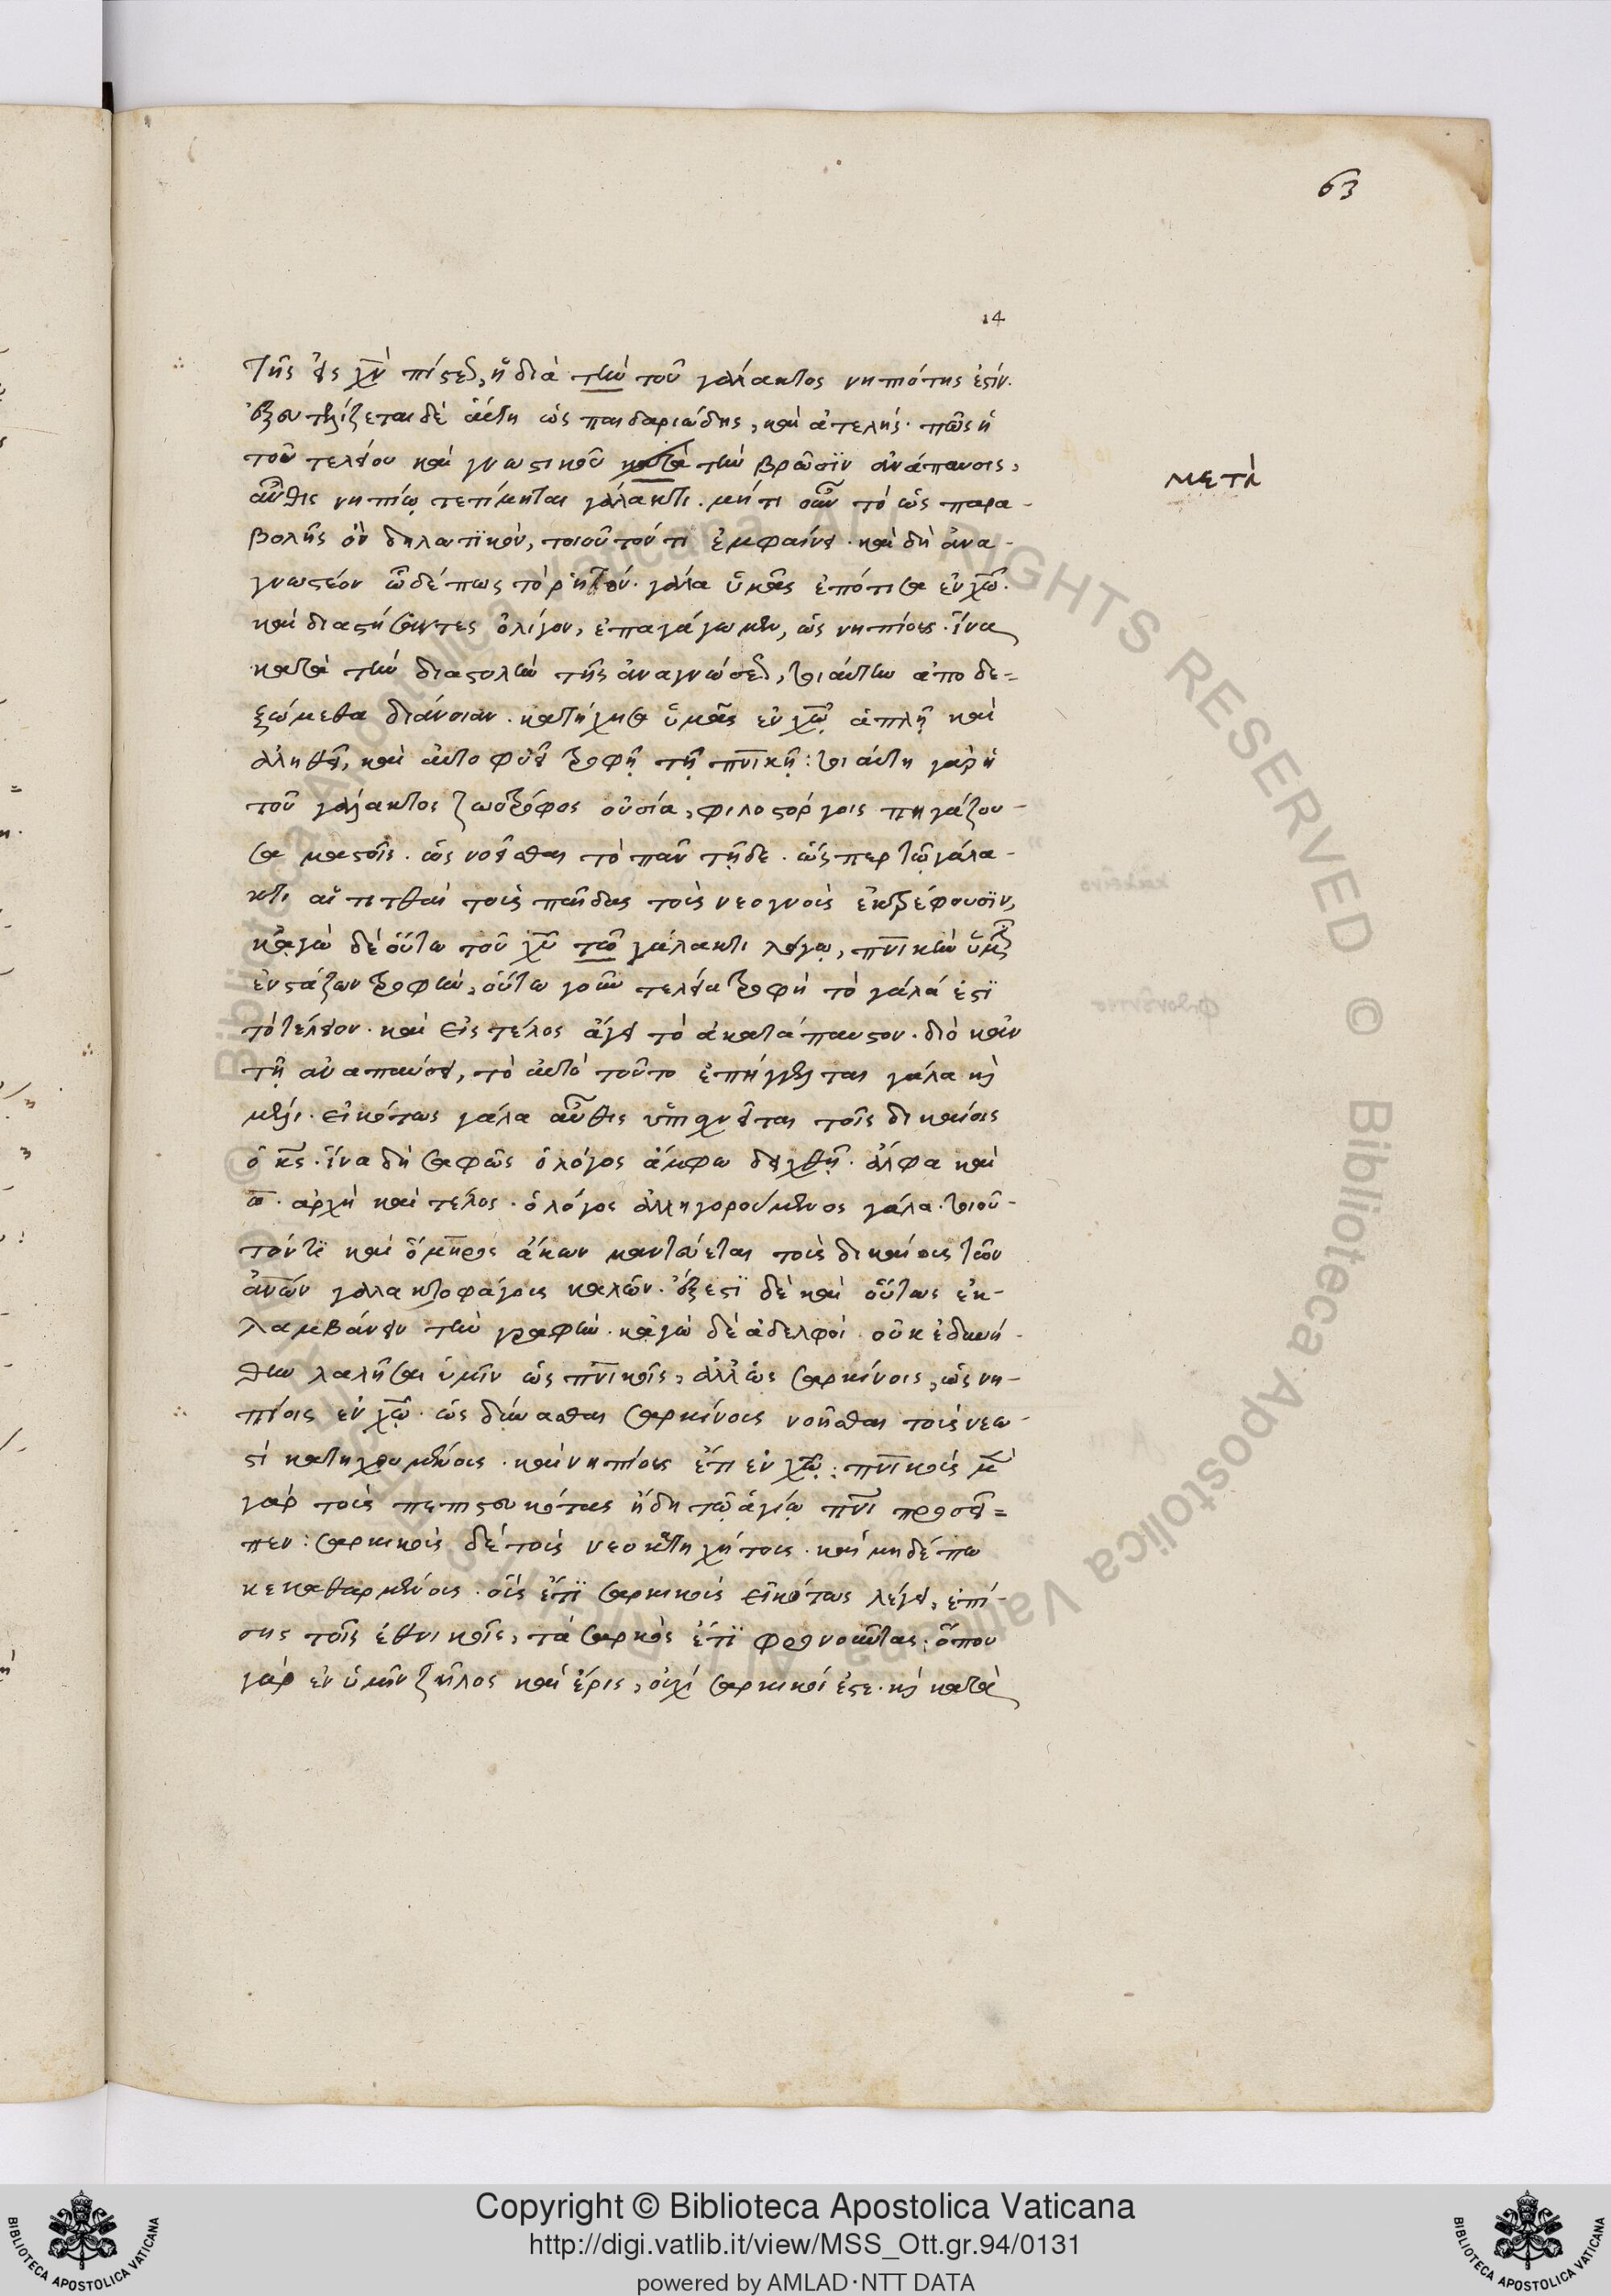 63
14
τῆς εἰς χ̅ν̅ πίστεως, ἢ διὰ τὴν τοῦ γάλακτος νηπιότης ἐστίν.
ἐξευτελίζεται δὲ αὕτη ὡς παιδαριώδης, καὶ ἀτελής· πῶς ἡ
τοῦ τελείου καὶ γνωστικοῦ κατὰ τὴν βρῶσϊν ἀνάπαυσις,
αὖθις νηπίῳ τετίμηται γάλακτι. μήτι οὖν τὸ ὡς παρα-
βολῆς ὂν δηλωτϊκὸν, τοιοῦτόν τι ἐμφαίνει. καὶ δὴ ἀνα-
γνωστέον ὧδέ πως τὸ ῥητόν. γάλα ὑμᾶς ἐπότισα ἐν χ̅ῶ̅.
καὶ διαστήσαντες ὀλίγον, ἐπαγάγωμεν, ὡς νηπίους. ἵνα
κατὰ τὴν διαστολὴν τῆς ἀναγνώσεως, τοιαύτην ἀποδε=
ξώμεθα διάνοιαν. κατήχησα ὑμᾶς ἐν χ̅ῷ̅ ἁπλῇ καὶ
ἀληθεῖ, καὶ αὐτοφυεῖ τροφῇ τῇ π̅ν̅ικῇ: τοιαύτη γὰρ ἡ
τοῦ γάλακτος ζωοτρόφος οὐσία, φιλοστόργοις πηγάζου-
σα μαστοῖς. ὡς νοεῖσθαι τὸ πᾶν τῇδε. ὥσπερ τῷ γάλα-
κτι αἱ τιτθαὶ τοὺς παῖδας τοὺς νεογνοὺς ἐκτρέφουσϊν,
κἀγὼ δὲ οὕτω τοῦ χ̅υ̅ τῶ γάλακτι λόγῳ, π̅ν̅ικὴν ὑμῖν
ἐνστάζων τροφὴν, οὕτω γοῦν τελεία τροφὴ τὸ γάλά ἐστϊ
τὸ τέλειον. καὶ εἰς τέλος ἄγει τὸ ἀκατάπαυστον. διὸ κἀν
τῇ ἀναπαύσει, τὸ αὐτὸ τοῦτο ἐπήγγελται γάλα κ̀
μέλι. εἰκότως γάλα αὖθις ὑπισχνεῖται τοῖς δικαίοις
ὁ κ̅ς̅. ἵνα δὴ σαφῶς ὁ λόγος ἄμφω δειχθῇ. ἄλφα καὶ
ω̅. ἀρχὴ καὶ τέλος. ὁ λόγος ἀλληγορούμενος γάλα. τοιοῦ-
τόν τϊ καὶ ὅμηρος ἄκων μαντεύεται τοὺς δικαίους τῶν
ἀ̅ν̅ῶν γαλακτοφάγους καλῶν. ἔξεστϊ δὲ καὶ οὕτως ἐκ-
λαμβάνειν τὴν γραφὴν. κἀγὼ δὲ ἀδελφοὶ. οὐκ ἐδυνή-
θην λαλῆσαι ὑμῖν ὡς π̅ν̅ικοῖς, ἀλλ' ὡς σαρκίνοις, ὡς νη-
πίοις ἐν χ̅ῷ̅. ὡς δύνασθαι σαρκίνους νοῆσθαι τοὺς νεω-
στὶ κατηχουμένους. καὶ νηπίους ἔτι ἐν χ̅ῷ̅: π̅ν̅ικοὺς μὲν
γὰρ τοὺς πεπιστευκότας ἤδη τῷ ἁγίῳ π̅ν̅ι προσεῖ=
πεν: σαρκικοὺς δὲ τοὺς νεοκατηχήτους. καὶ μηδέπω
κεκαθαρμένους. οὓς ἔτϊ σαρκικοὺς εἰκότως λέγει, ἐπί-
σης τοῖς ἐθνικοῖς, τὰ σαρκὸς ἔτϊ φρονοῦντας. ὅπου
γὰρ ἐν ὑμῖν ζῆλος καὶ ἔρις, οὐχὶ σαρκικοί ἐστε. κ̀ κατὰ
μετὰ
Copyright © Biblioteca Apostolica Vaticana
http://digi.vatlib.it/view/MSS_Ott.gr.94/0131
powered by AMLAD·NTT DATA